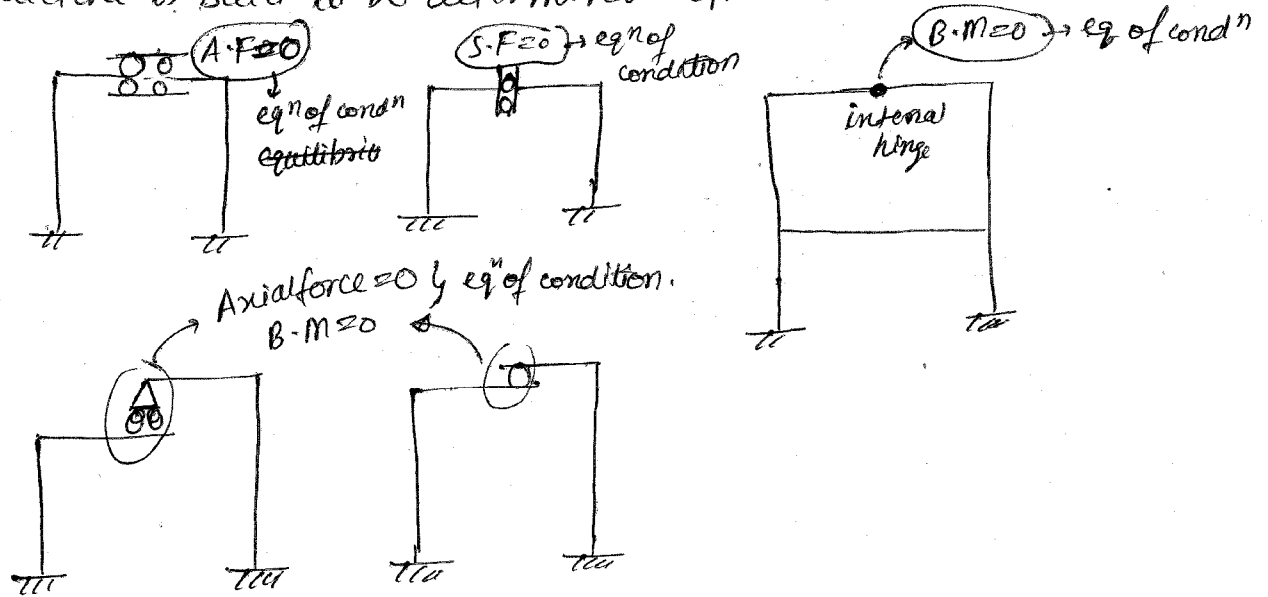 is said to be
A.F=0
↓
eqⁿ of condⁿ
equilibrio
S.F=0 → eqⁿ of
condition
B.M=0 → eq of condⁿ
internal
hinge
Axial force =0 & eqⁿ of condition.
B.M=0